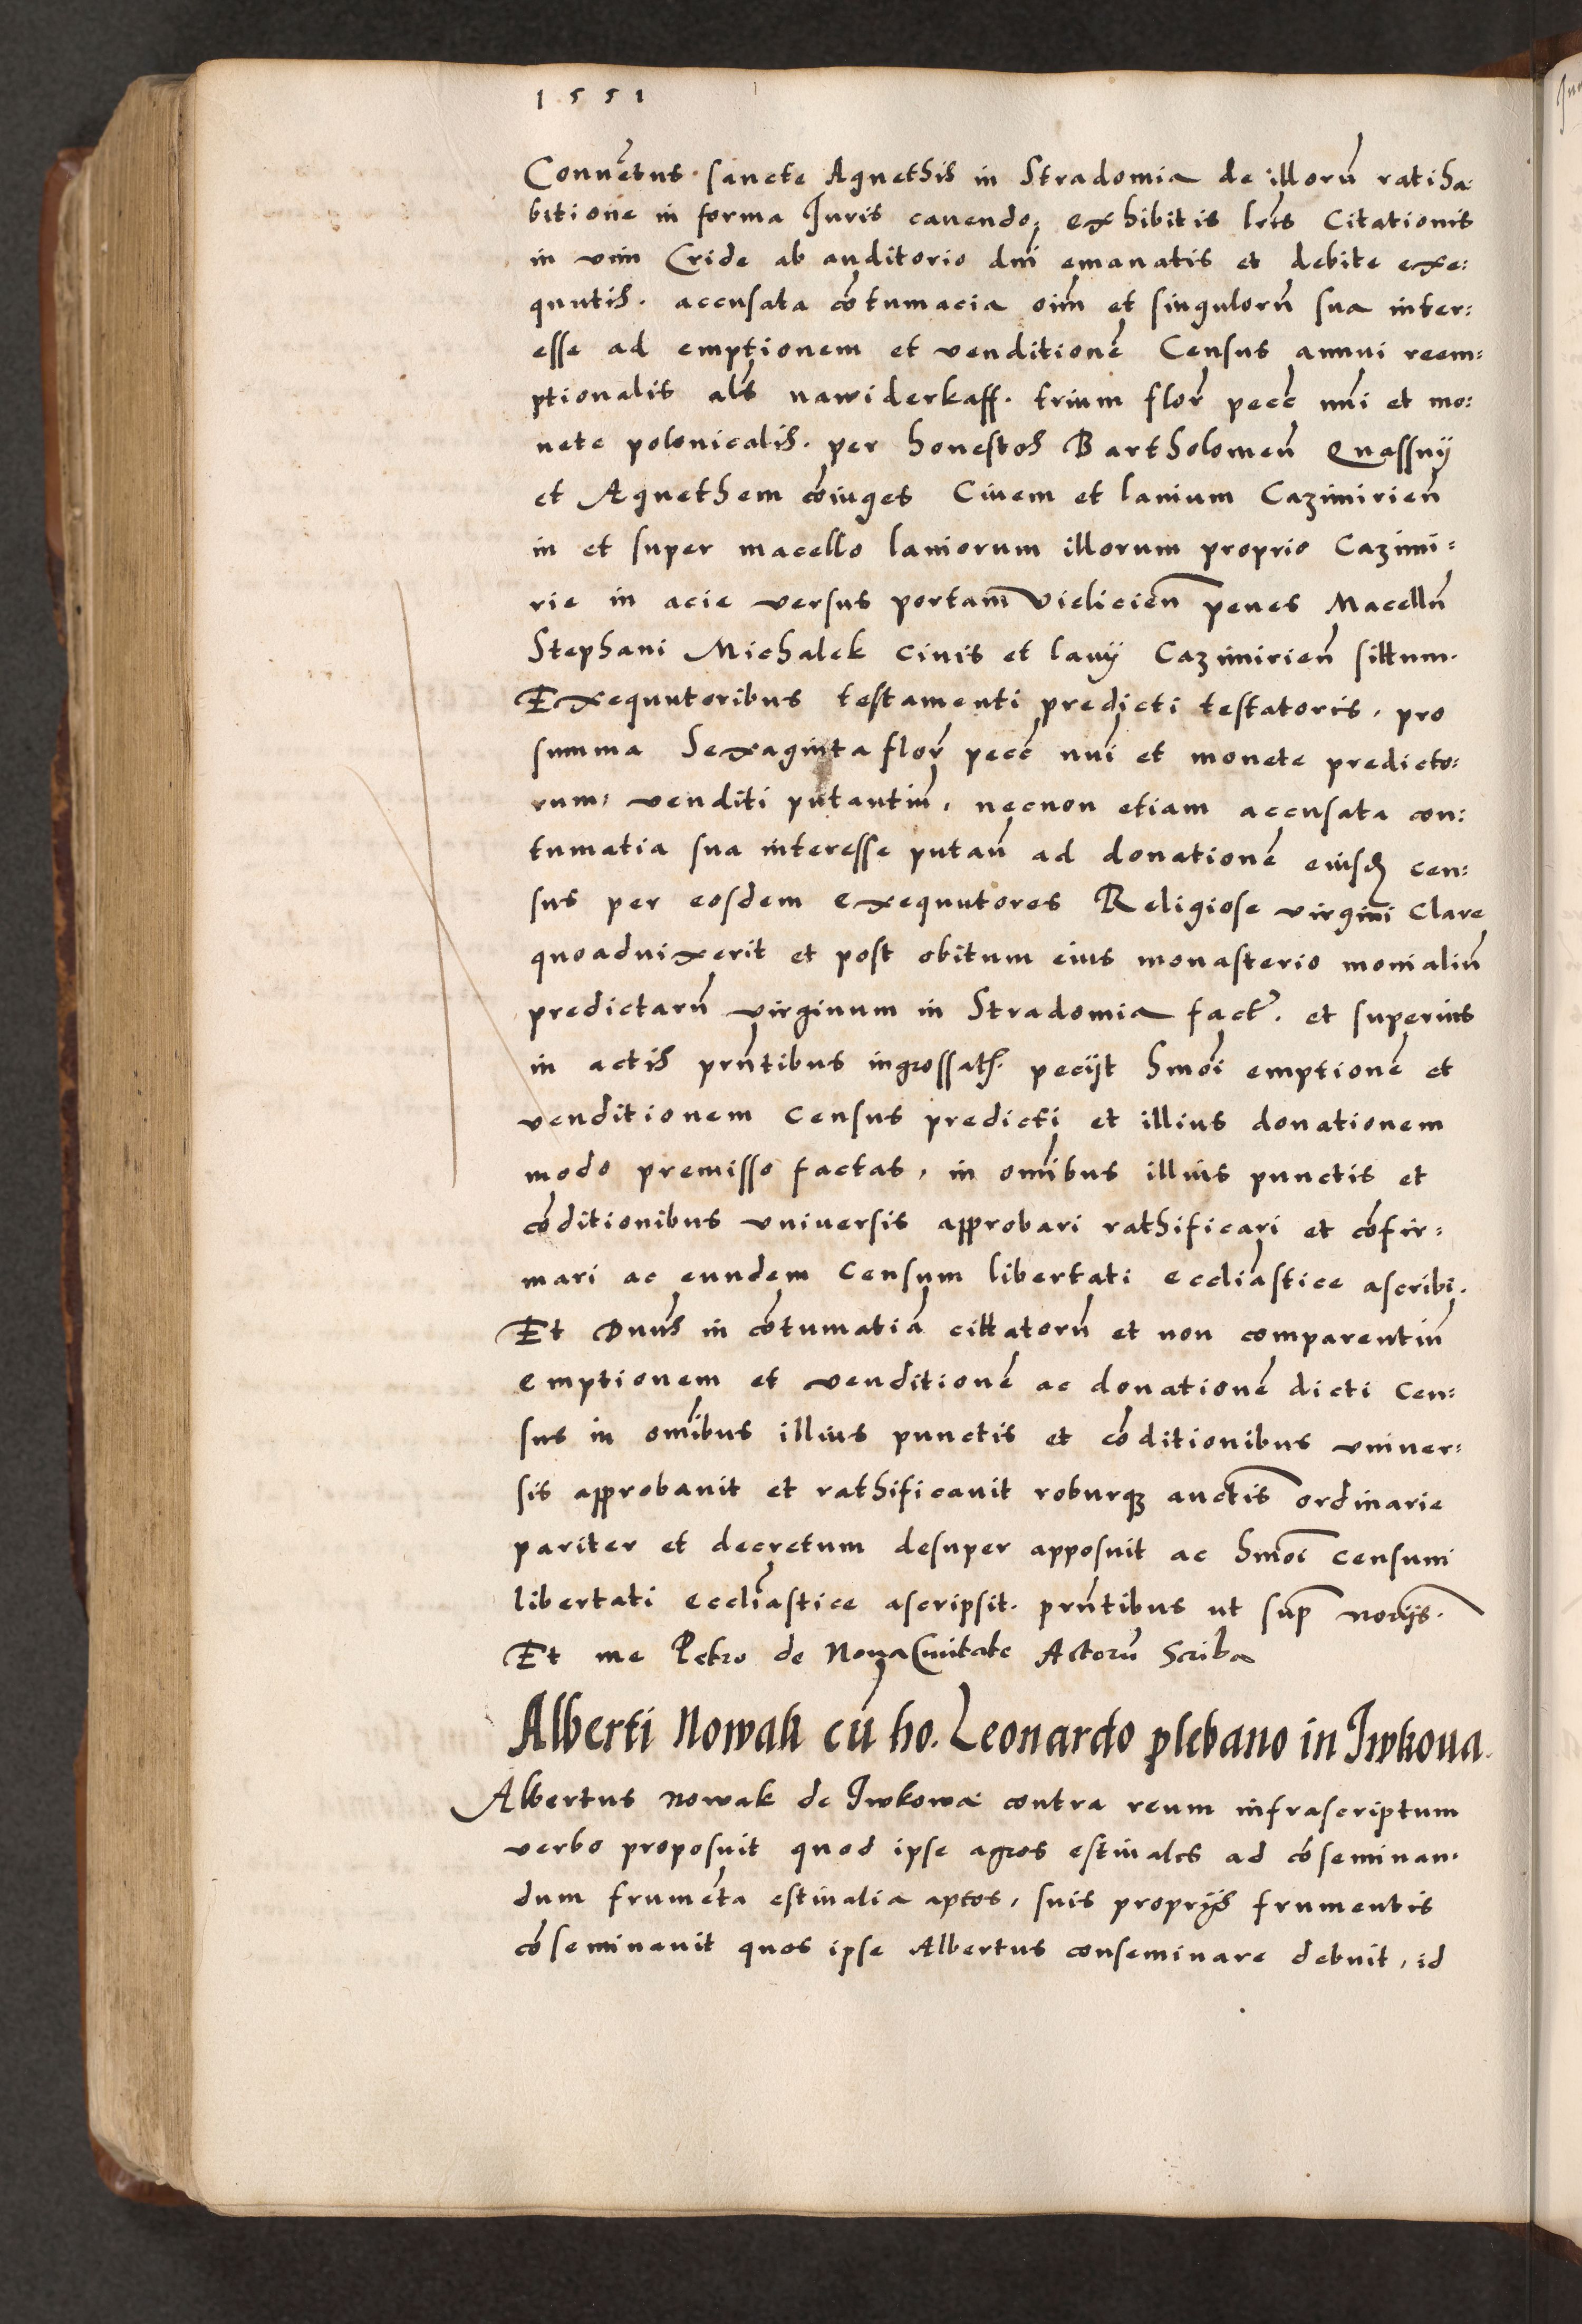 1551
Convētus sancte Agnethis in Stradomia de illorū ratiha=
bitione in forma Juris cavendo, exhibitis lr̄is Citationis
in vim Cride ab auditorio dn̄i emanatis et debite exe=
quutis. accusata cōtumacia oīm et singulorū sua inter=
esse ad emptionem et venditionē Census annui reem=
ptionalis al̄s nawiderkaff. trium flor̄ pecc̄ nn̄i et mo=
nete polonicalis. per honestos Bartholomeū Quassnÿ
et Agnethem cōiuges Ciuem et lanium Cazimirieñ
in et super macello laniorum illorum proprio Cazimi=
rie in acie versus portam Vielicieñ penes Macellū
Stephani Michalek civis et lanÿ Cazimirieñ sittum.
Exequutoribus testamenti predicti testatoris, pro
summa Sexaginta flor̄ pecc̄ nūi et monete predicto=
rum, venditi putantiū, necnon etiam accusata con=
tumatia sua interesse putañ ad donationē eiusd̄ cen=
sus per eosdem exequutores Religiose virgini Clare
quoadvixerit et post obitum eius monasterio monialiū
predictarū virginum in Stradomia fact̄. et superius
in actis pn̄tibus ingrossat̄. peciit hmōi emptionē et
venditionem Census predicti et illius donationem
modo premisso factas, in om̄ibus illius punctis et
cōditionibus vniuersis approbari rathificari et cōfir=
mari ac eundem Censum libertati eccliāstice ascribi.
Et Dn̄us in cōtumatiā cittatorū et non comparentiū
emptionem et venditionē ac donationē dicti Cen=
sus in om̄ibus illius punctis et cōditionibus vniuer=
sis approbauit et rathificauit roburq̄ auctīs ordinarie
pariter et decretum desuper apposuit ac hmōi Censum
libertati eccliāstice ascripsit. pn̄tibus ut sup̄
Et me Petro de Nova Ciuitate Actorū Scriba
Alberti Nowak cū ho. Leonardo plebano in Iwkoua.
Albertus Nowak de Iwkowa contra reum infrascriptum
verbo proposuit quod ipse agros estiuales ad cōseminan=
dum frumēta estiualia aptos, suis proprÿs frumentis
cōseminauit quos ipse Albertus conseminare debuit, id